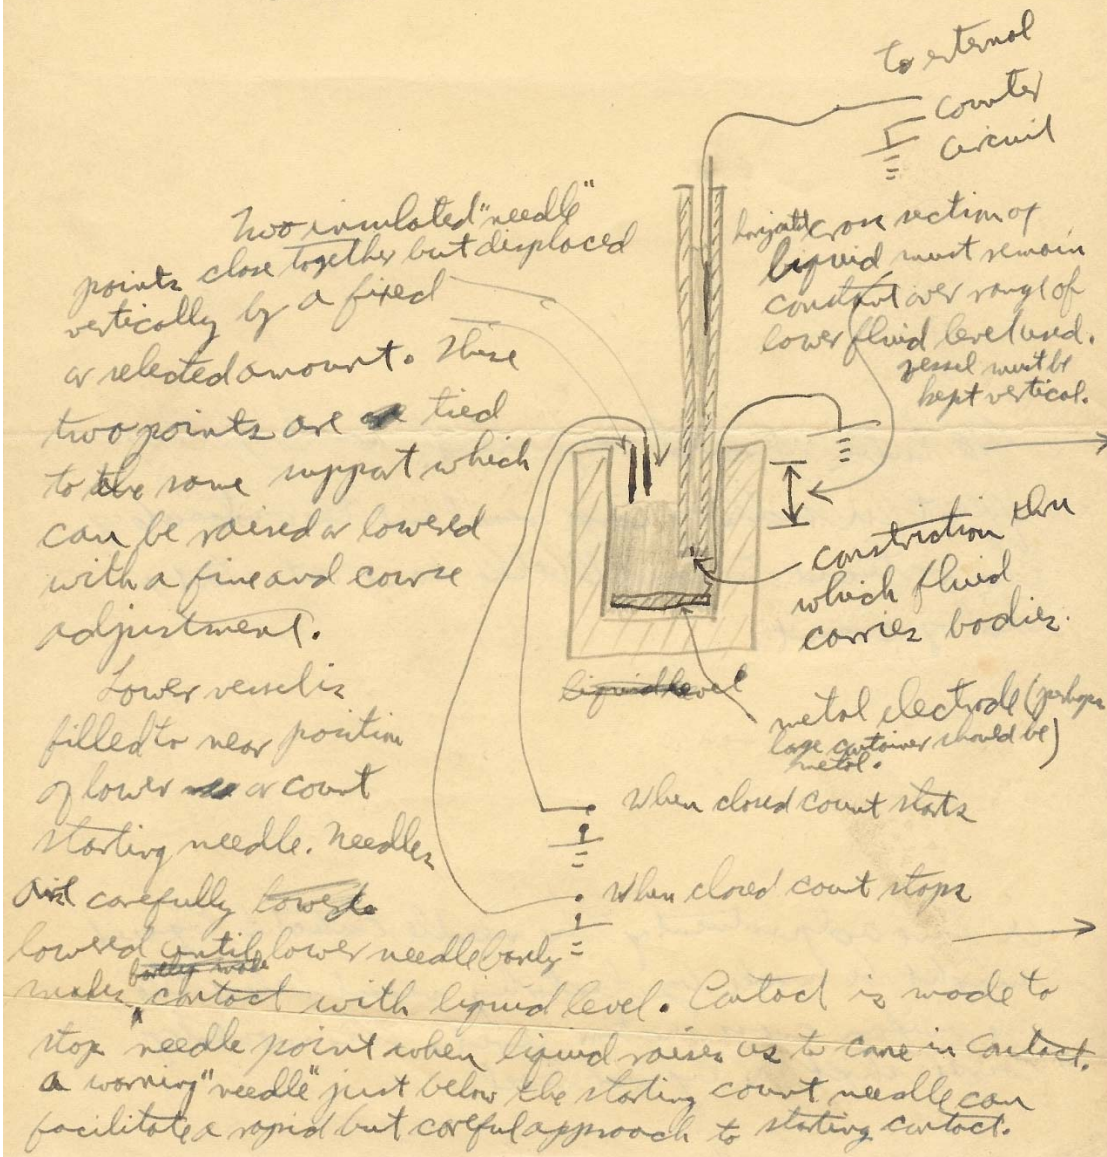 to external
counter
circuit
Two insulated "needle"
points close together but displaced
vertically by a fixed
or selected amount. These
two points are tied
to the same support which
can be raised or lowered
with a fine and course
adjustment.
Lower vessel is
filled to near position
of lower or count
starting needle. Needles
are carefully lowered
lowered until lower needle barely
makes barely make contact with liquid level. Contact is made to
stop needle point when liquid raises as to come in contact.
a warning "needle" just below the starting count needle can
facilitate a rapid but careful approach to starting contact.
horizontal cross section of
liquid must remain
constant over range of
lower fluid level used.
vessel must be
kept vertical.
constriction thru
which fluid
carries bodies.
liquid level
metal electrode (perhaps
large container should be)
metal.
When closed count starts
When closed count stops